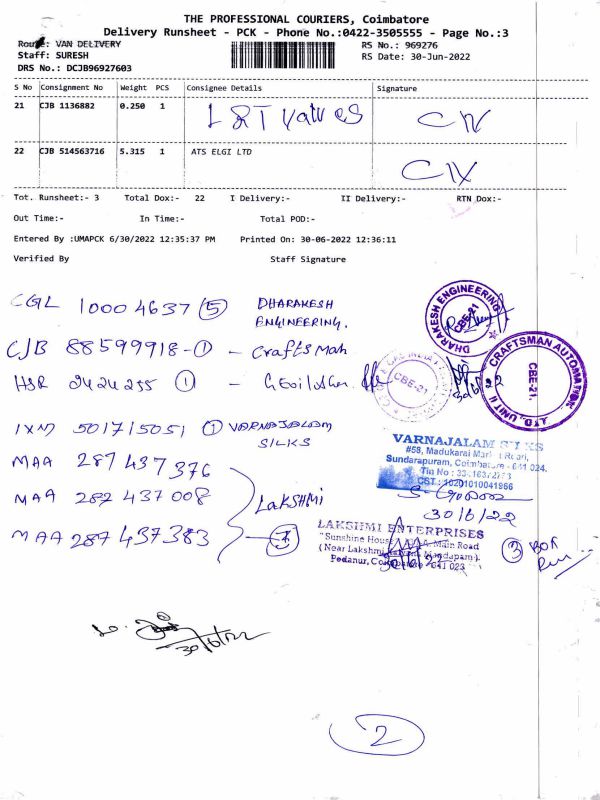 THE PROFESSIONAL COURIERS, Coimbatore
Delivery Runsheet - PCK - Phone No.:0422-3505555 - Page No.:3
Route: VAN DELIVERY
Staff: SURESH
DRS No.: DCJB96927603
RS No.: 969276
RS Date: 30-Jun-2022
S No Consignment No Weight PCS Consignee Details Signature
21 CJB 1136882 0.250 1 L&T Valves
22 CJB 514563716 5.315 1 ATS ELGI LTD
Tot. Runsheet:- 3 Total Dox:- 22 I Delivery:- II Delivery:- RTN Dox:-
Out Time:- In Time:- Total POD:-
Entered By :UMAPCK 6/30/2022 12:35:37 PM Printed On: 30-06-2022 12:36:11
Verified By Staff Signature
CGL 10004637 (5) DHARAKESH
ENGINEERING.
DHARAKESH ENGINEERING
CBE-21
CJB 88599918-(1) - Craftsman
CRAFTSMAN AUTOMATION
LTD., UNIT II
CBE-21.
HSR 2424255 (1) -
CBE-21
30/6/22
IXM 501715051 (1) VARNAJALAM
SILKS
VARNAJALAM SILKS
#58, Madukarai Market Road,
Sundarapuram, Coimbatore - 641 024.
CST.: 10201010041966
30/6/22
MAA 287437376
MAA 282437008
MAA 287437383
LAKSHMI
LAKSHMI ENTERPRISES
"Sunshine House" Main Road
(Near Lakshmi Mandapam)
Pedanur, Coimbatore - 641 023
30/6/22
(3) BOX
30/6/22
2